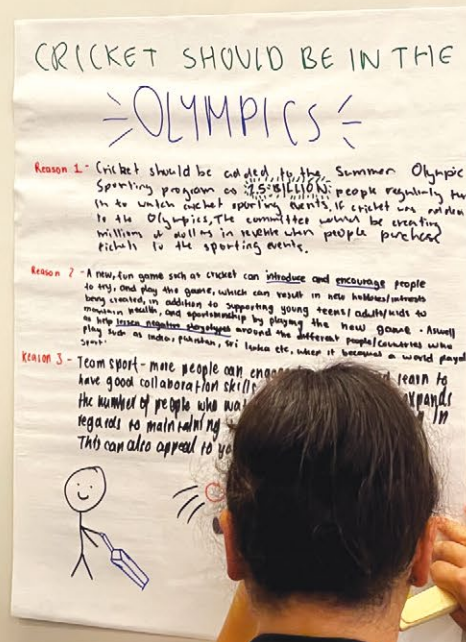 CRICKET SHOULD BE IN THE
OLYMPICS
Reason 1 - Cricket should be added to the Summer Olympic
Sporting program as 2.5 BILLION people regularly
in to watch cricket sporting events. If cricket was
to the Olympics, The committee would be creating
millions of dollars in revenue when people purchase
tickets to the sporting events.
Reason 2 - A new, fun game such as cricket can introduce and encourage people
to try, and play the game, which can result in new hobbies/interests
being created, in addition to supporting young teens/adults/kids to
maintain health, and sportsmanship by playing the new game. Aswell
as help lessen negative around the different people/countries who
play such as India, Pakistan, Sri Lanka etc, when it becomes a world played
sport.
Reason 3 - Team sport - more people can learn to
have good collaboration skills
the number of people who
regards to maintaining In
This can also appeal to